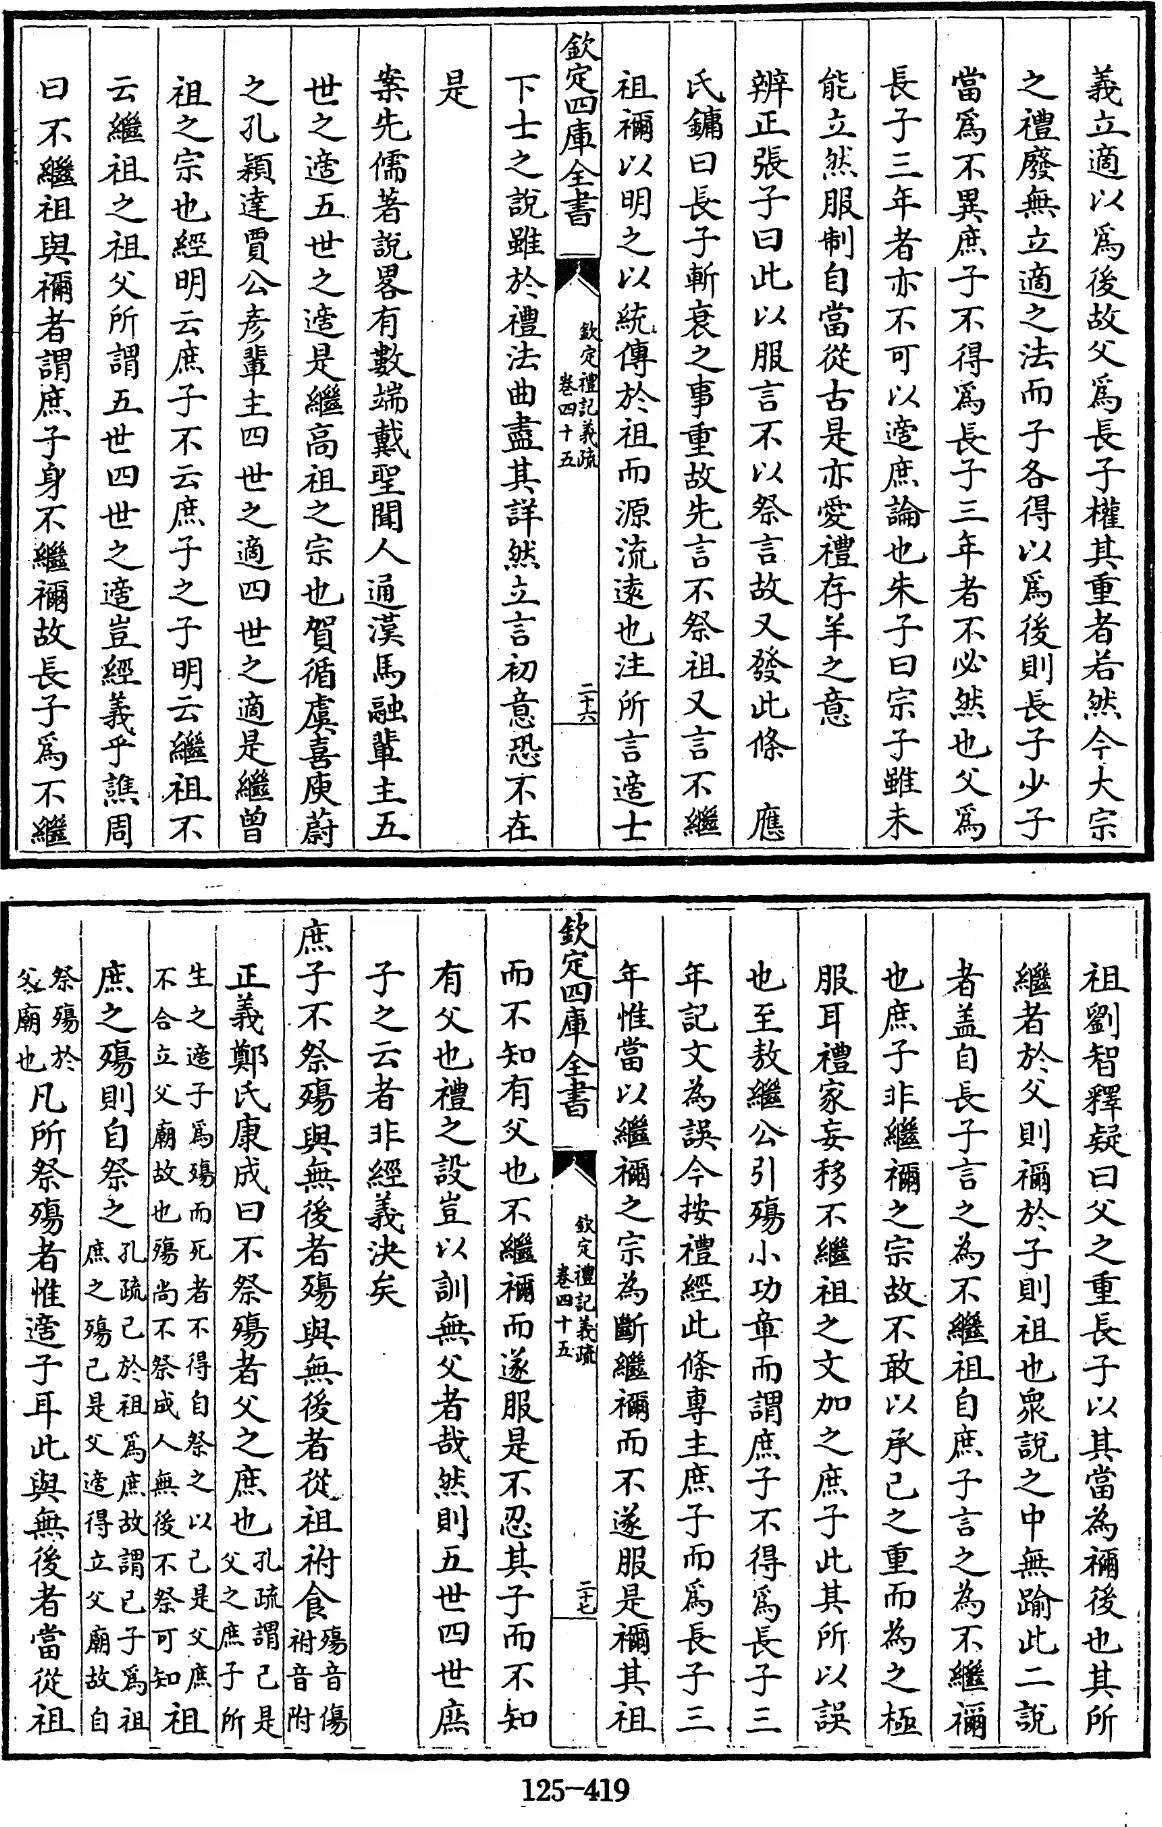 義立適以爲後故父爲長子權其重者若然今大宗
之禮廢無立適之法而子各得以爲後則長子少子
當爲不異庶子不得爲長子三年者不必然也父爲
長子三年者亦不可以適庶論也朱子曰宗子雖未
能立然服制自當從古是亦愛禮存羊之意
辨正張子曰此以服言不以祭言故又發此條　應
氏鏞曰長子斬衰之事重故先言不祭祖又言不繼
祖禰以明之以統傳於祖而源流逺也注所言適士
欽定四庫全書
欽定禮記義疏
卷四十五
二十六
下士之說雖於禮法曲盡其詳然立言初意恐不在
是
案先儒著說畧有數端戴聖聞人通漢馬融輩主五
世之適五世之適是繼高祖之宗也賀循虞喜庾蔚
之孔穎達賈公彥輩主四世之適四世之適是繼曾
祖之宗也經明云庶子不云庶子之子明云繼祖不
云繼祖之祖父所謂五世四世之適豈經義乎譙周
曰不繼祖與禰者謂庶子身不繼禰故長子爲不繼
祖劉智釋疑曰父之重長子以其當為禰後也其所
繼者於父則禰於子則祖也衆說之中無踰此二說
者盖自長子言之為不繼祖自庶子言之為不繼禰
也庶子非繼禰之宗故不敢以承己之重而為之極
服耳禮家妄移不繼祖之文加之庶子此其所以誤
也至敖繼公引殤小功章而謂庶子不得爲長子三
年記文為誤今按禮經此條專主庶子而爲長子三
年惟當以繼禰之宗為斷繼禰而不遂服是禰其祖
欽定四庫全書
欽定禮記義疏
卷四十五
二十七
而不知有父也不繼禰而遂服是不忍其子而不知
有父也禮之設豈以訓無父者哉然則五世四世庶
子之云者非經義決矣
庶子不祭殤與無後者殤與無後者從祖祔食殤音傷祔音附
正義鄭氏康成曰不祭殤者父之庶也孔疏謂己是父之庶子所
生之適子爲殤而死者不得自祭之以己是父庶不合立父廟故也殤尚不祭成人無後不祭可知祖
庶之殤則自祭之孔疏己於祖爲庶故謂己子爲祖庶之殤己是父適得立父廟故自
祭殤於父廟也凡所祭殤者惟適子耳此與無後者當從祖
125-419